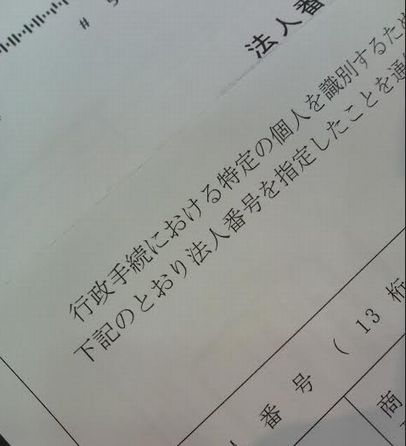 法人番
行政手続における特定の個人を識別するため
下記のとおり法人番号を指定したことを通
番号 (13 桁
商